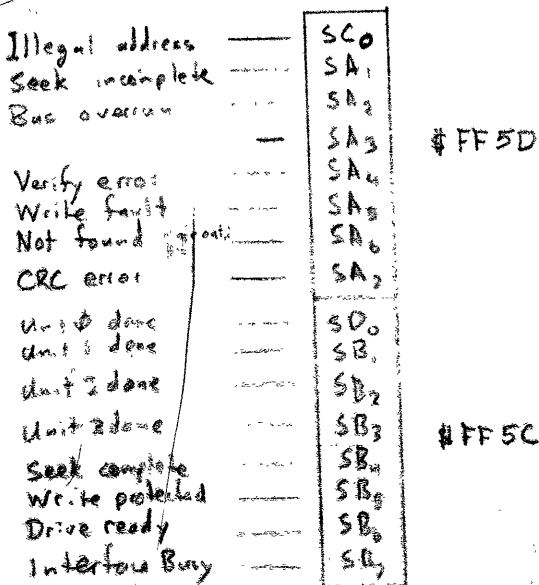 Illegal address SC0
Seek incomplete SA1
Bus overrun SA2
SA3 $FF5D
Verify error SA4
Write fault SA5
Not found SA6
CRC error SA7
Unit 0 done SD0
Unit 1 done SB1
Unit 2 done SB2
Unit 3 done SB3 $FF5C
Seek complete SB4
Write protected SB5
Drive ready SB6
Interface Busy SB7